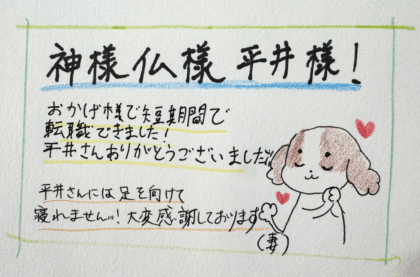 神様仏様平井様!
おかげ様で短期間で
転職できました!
平井さんありがとうございました!!
平井さんには足を向けて
寝れません!!大変感謝しております
(妻